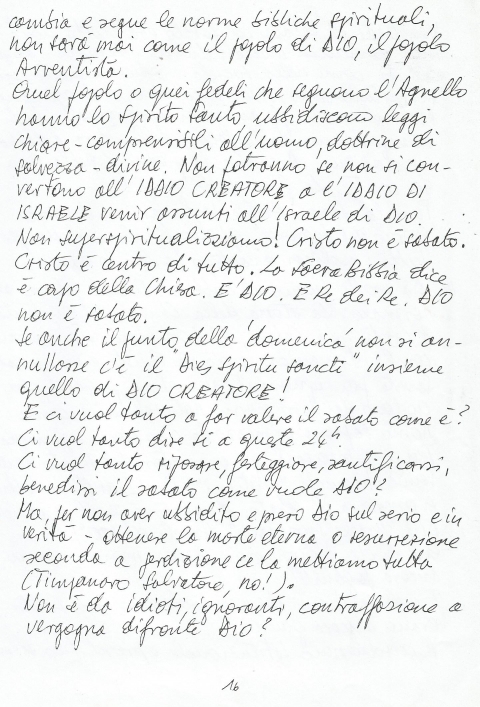 cambia e segue le norme bibliche spirituali,
non sarà mai come il popolo di DIO, il popolo
Avventista.
Quel popolo o quei fedeli che seguono l'Agnello
hanno lo Spirito Santo, ubbidiscono leggi
chiare - comprensibili all'uomo, dottrine di
salvezza - divine. Non potranno se non si con-
vertono all'IDDIO CREATORE a l'IDDIO DI
ISRAELE venir assunti all'Israele di DIO.
Non superspiritualizziamo! Cristo non è sabato.
Cristo è centro di tutto. La Sacra Bibbia dice
è capo della Chiesa. E' DIO. È Re dei Re. DIO
non è sabato.
Se anche il punto della 'domenica' non si an-
nullasse c'è il "Dies spiritu sancti" insieme
quello di DIO CREATORE!
E ci vuol tanto a far valere il sabato come è?
Ci vuol tanto dire sì a queste 24h.
Ci vuol tanto riposare, festeggiare, santificarsi,
benedirsi il sabato come vuole DIO?
Ma, per non aver ubbidito e preso Dio sul serio e in
verità - ottenere la morte eterna o resurrezione
seconda a perdizione ce la mettiamo tutta
(Timpanaro Salvatore, no!).
Non è da idioti, ignoranti, contraffazione a
vergogna difronte Dio?
16